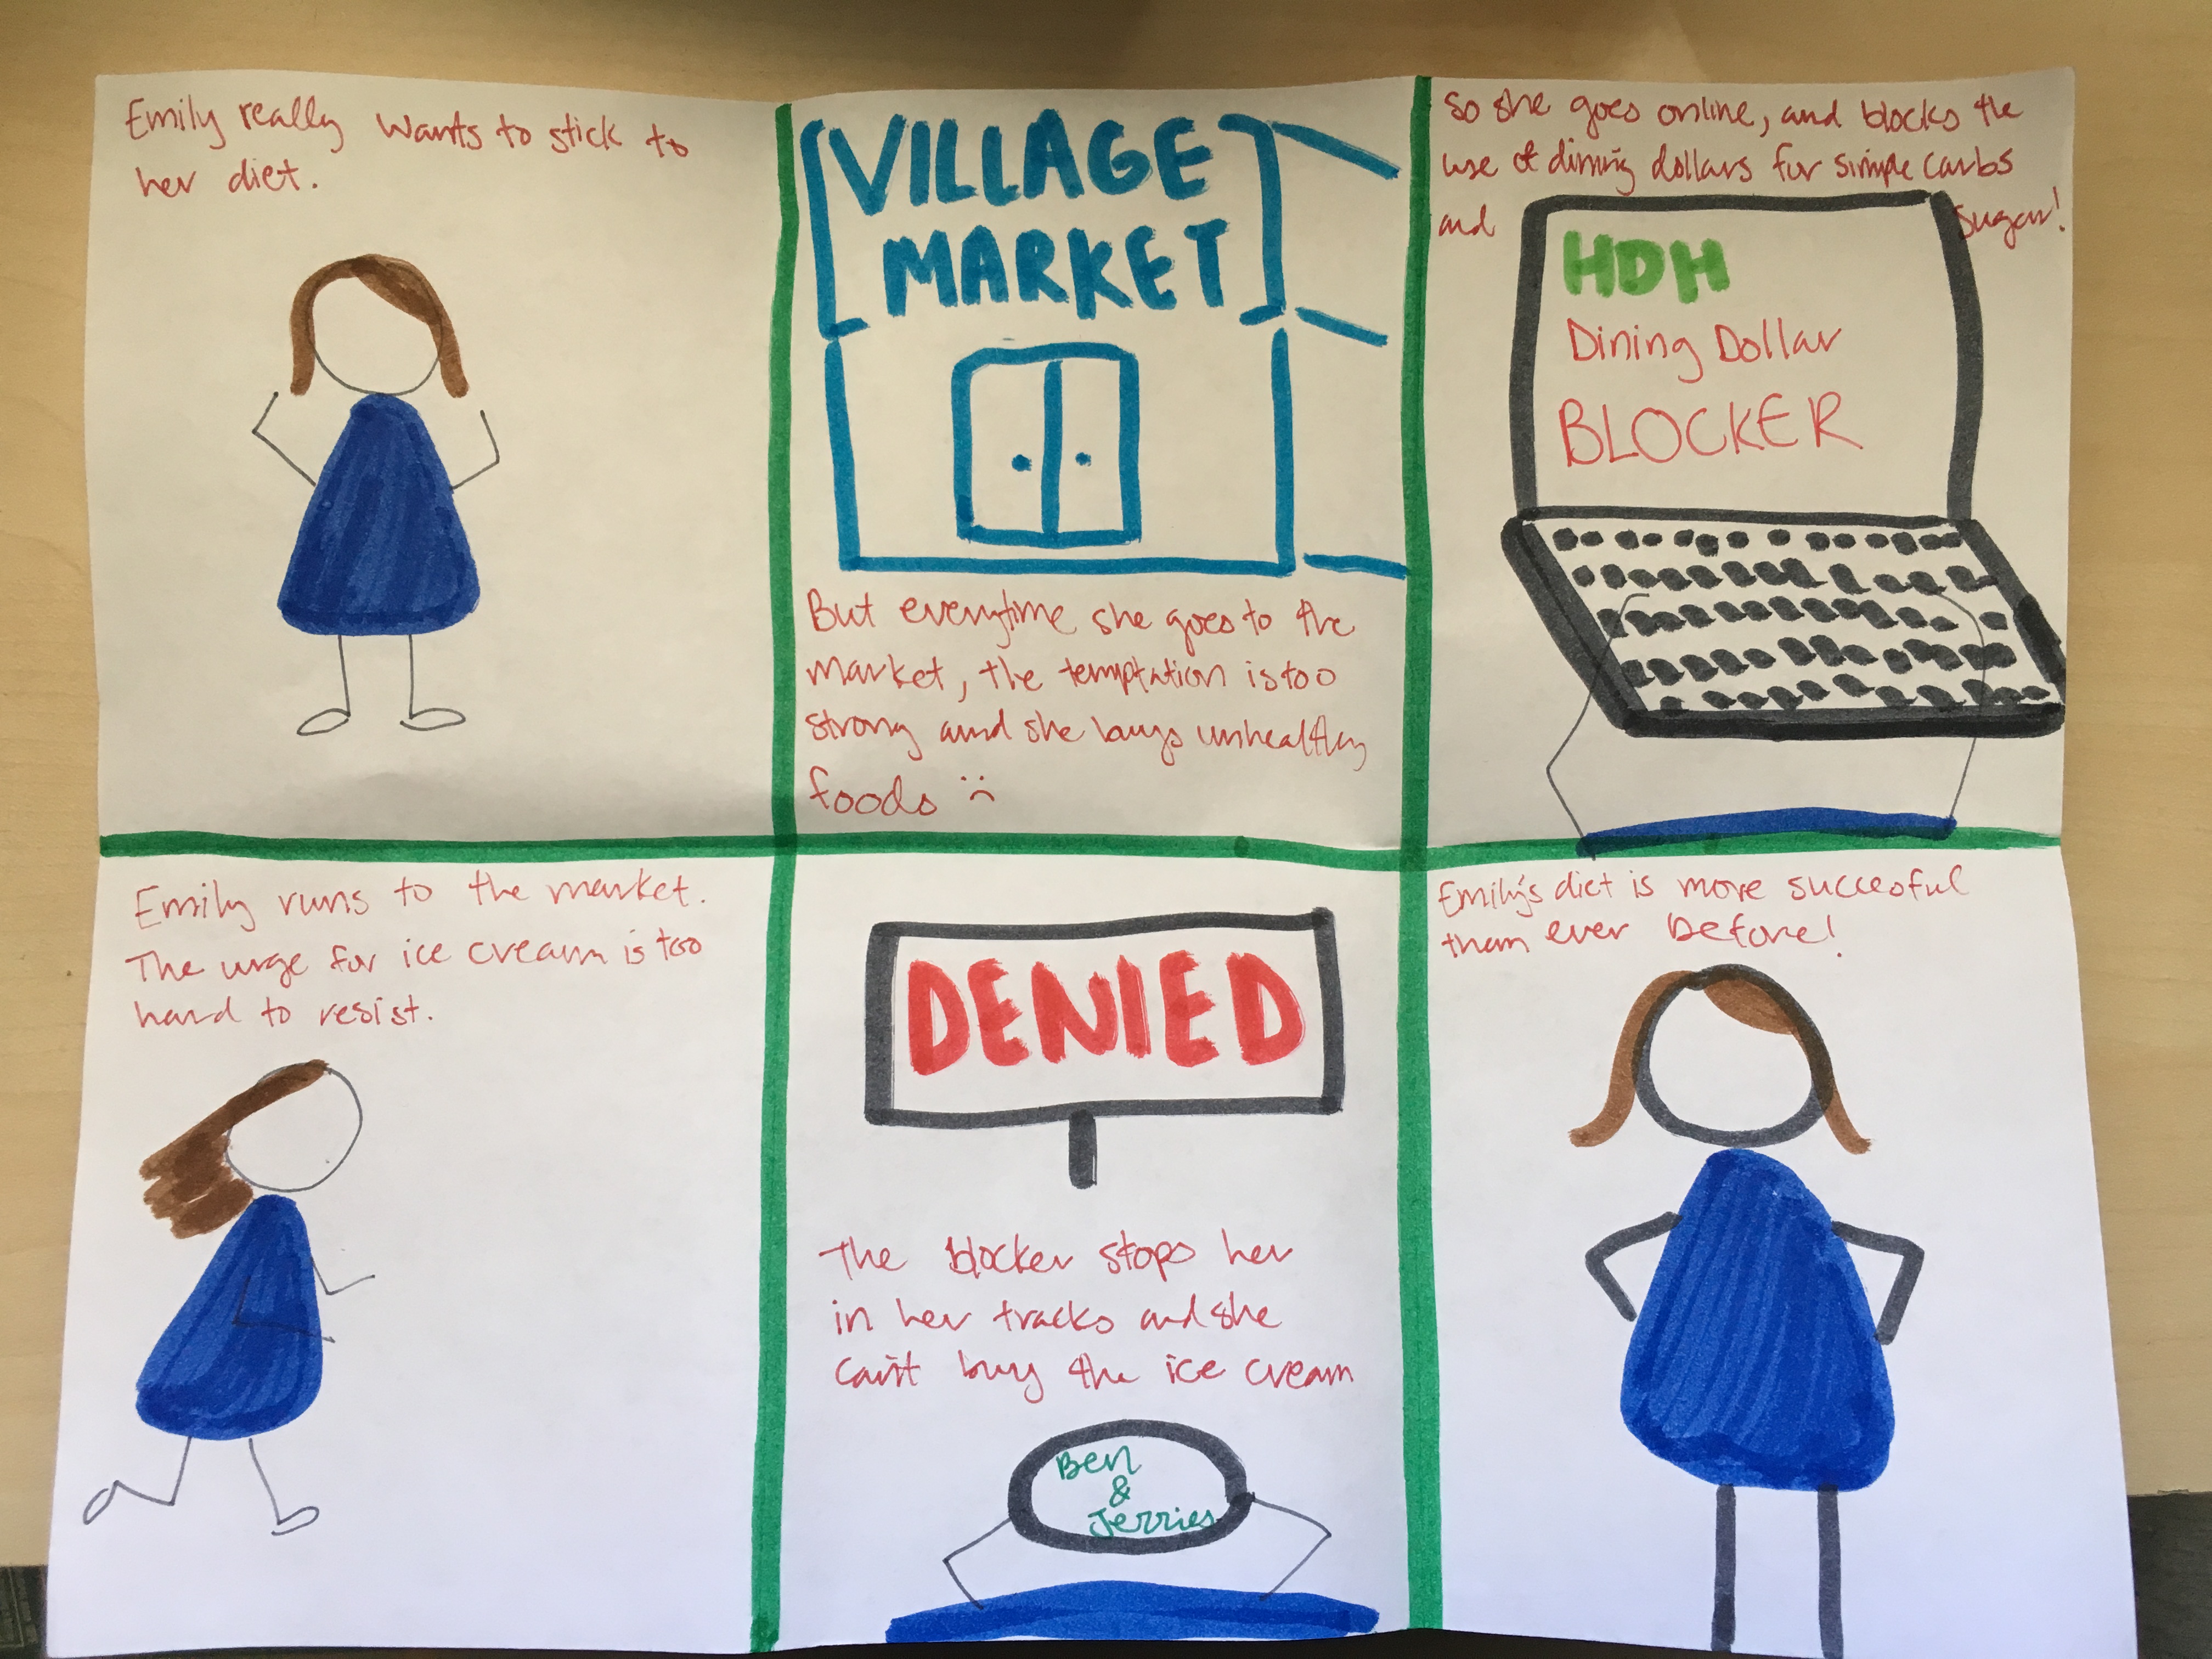 Emily really wants to stick to
her diet.
VILLAGE
MARKET
But everytime she goes to the
market, the temptation is too
strong and she buys unhealthy
foods :(
So she goes online, and blocks the
use of dining dollars for simple carbs
and sugar!
HDH
Dining Dollar
BLOCKER
Emily runs to the market.
The urge for ice cream is too
hard to resist.
DENIED
The blocker stops her
in her tracks and she
can't buy the ice cream
Ben
&
Jerries
Emily's diet is more succesful
than ever before!